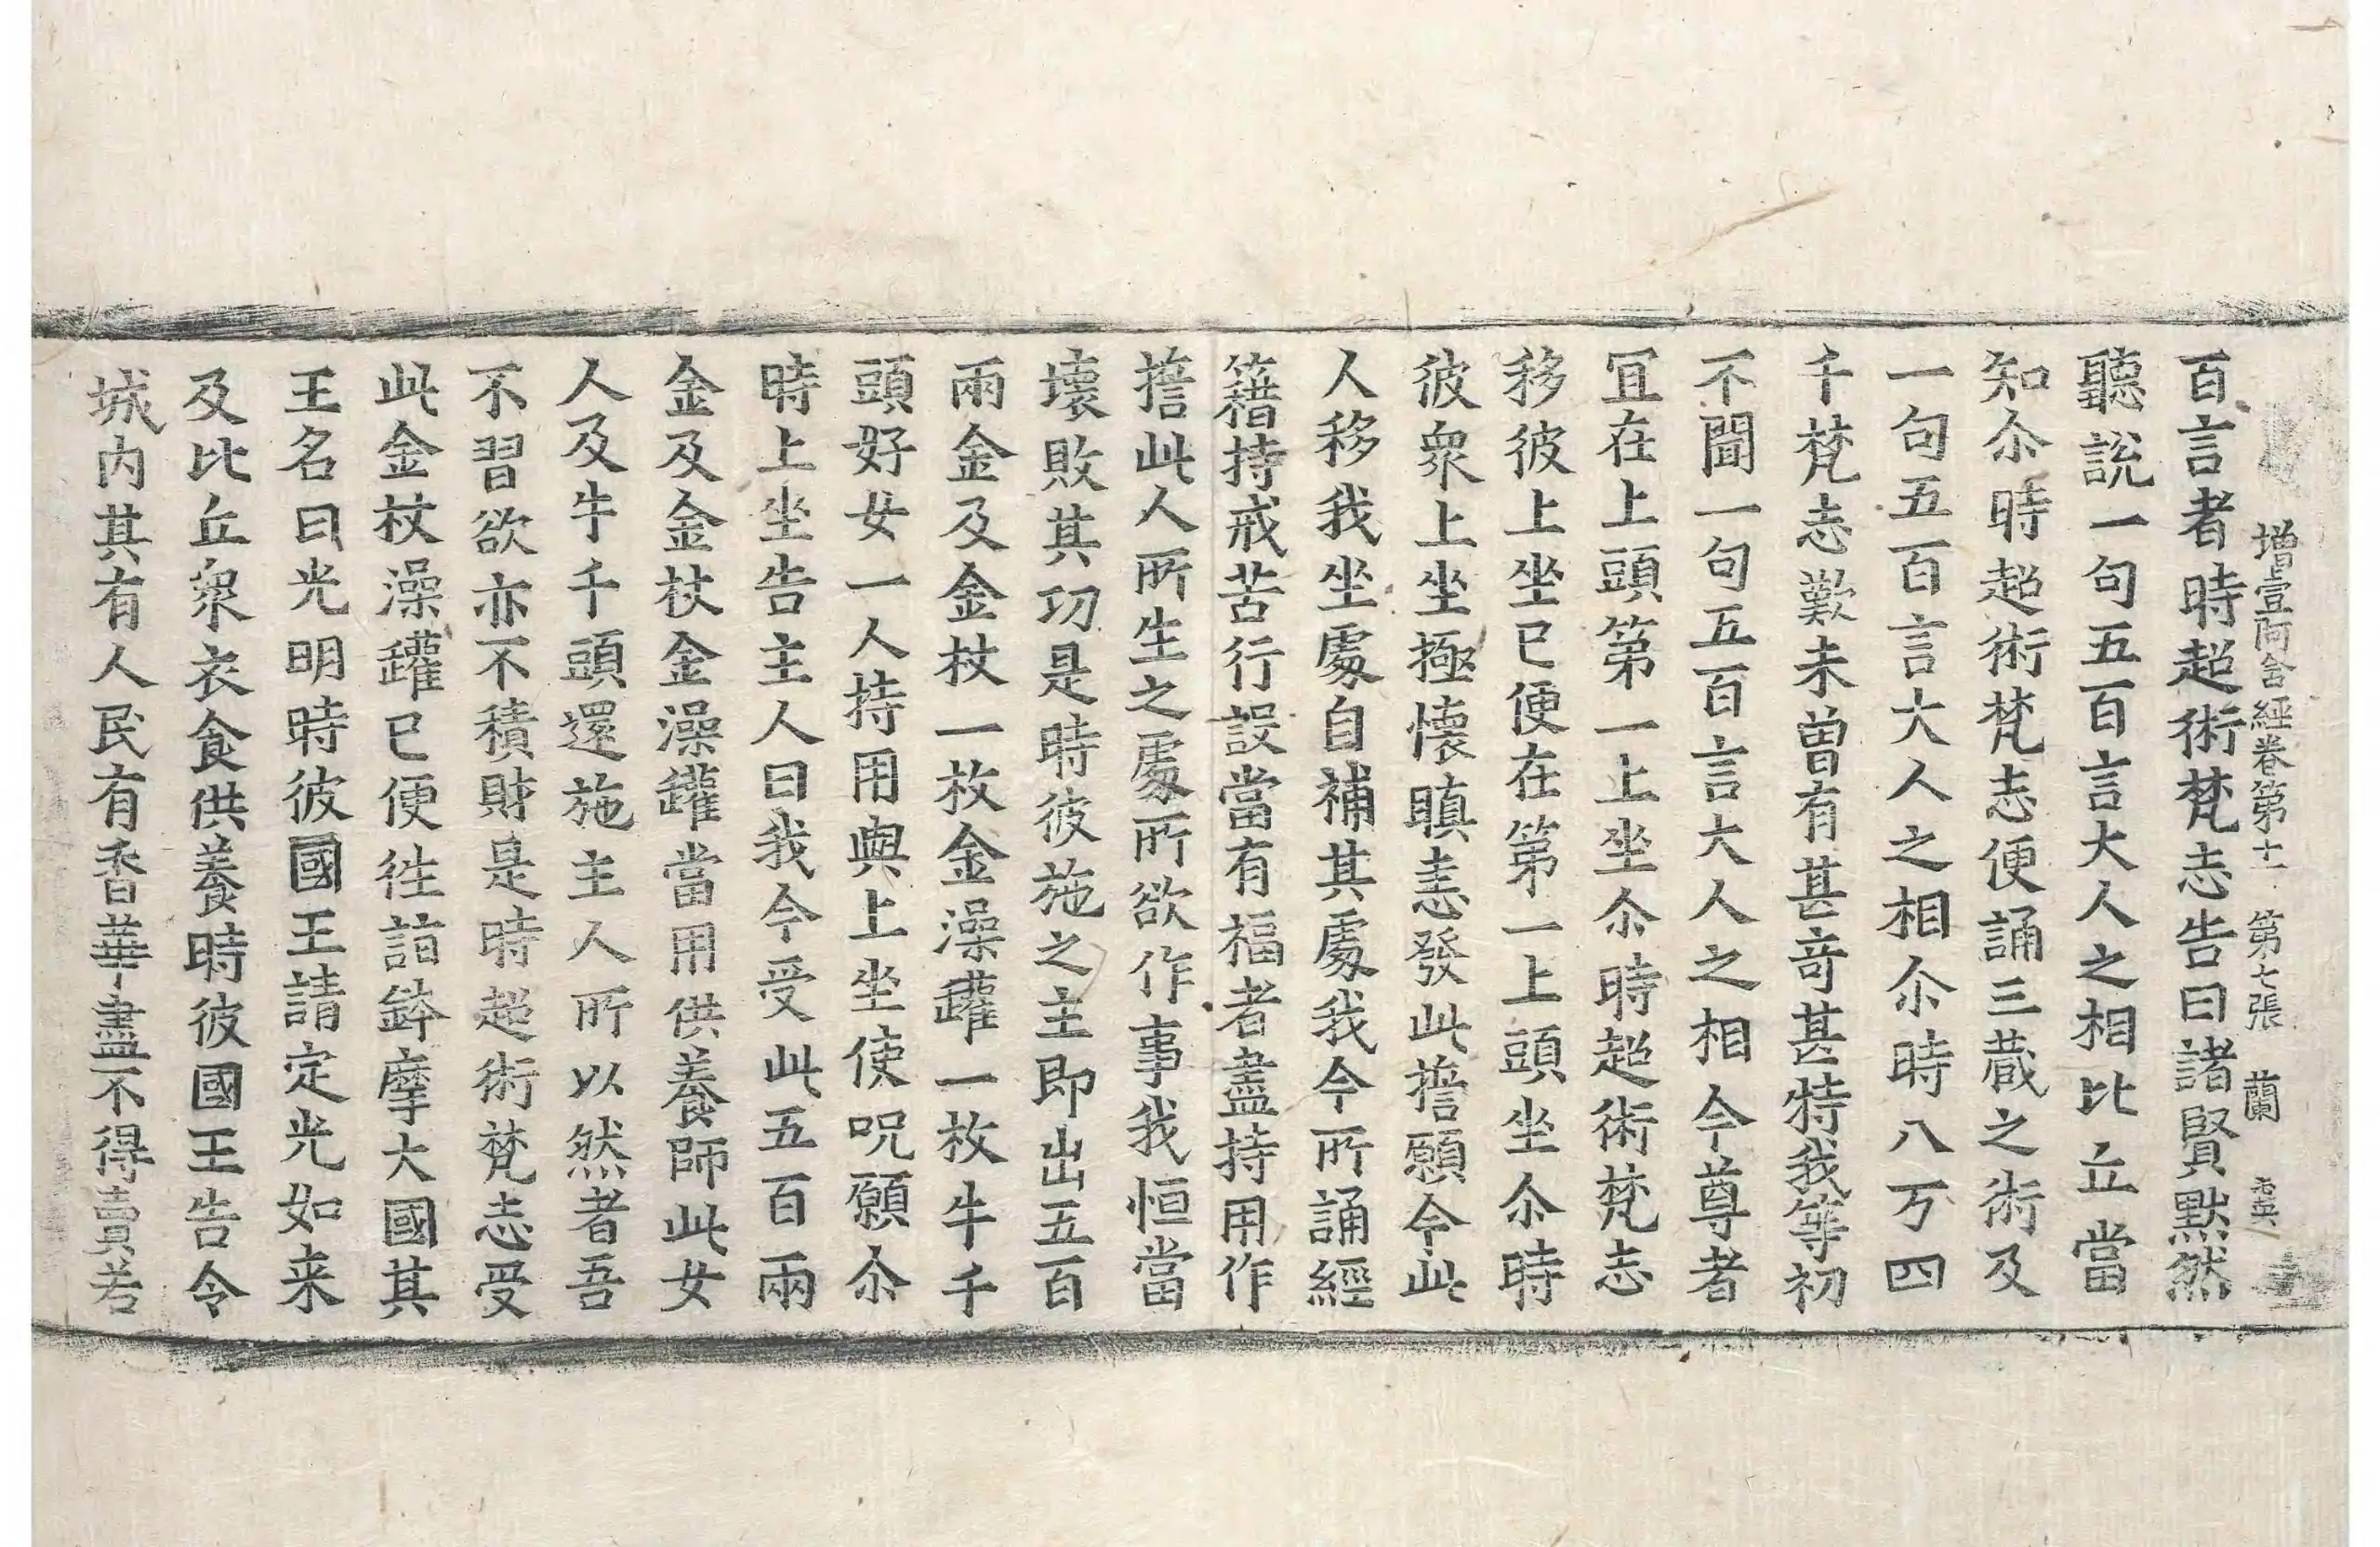 增壹阿含經卷第十一 第七張 蘭
百言者時超術梵志告曰諸賢默然
聽說一句五百言大人之相比丘當
知尒時超術梵志便誦三藏之術及
一句五百言大人之相尒時八万四
千梵志歎未曾有甚奇甚特我等初
不聞一句五百言大人之相今尊者
冝在上頭第一上坐尒時超術梵志
移彼上坐已便在第一上頭坐尒時
彼衆上坐極懷瞋恚發此擔願今此
人移我坐處自補其處我今所誦經
籍持戒苦行設當有福者盡持用作
擔此人所生之處所欲作事我恒當
壞敗其功是時彼施之主即出五百
兩金及金杖一枚金澡罐一枚牛千
頭好女一人持用與上坐使呪願尒
時上坐告主人曰我今受此五百兩
金及金杖金澡罐當用供養師此女
人及牛千頭還施主人所以然者吾
不習欲亦不積財是時超術梵志受
此金杖澡罐已便徃詣鉢摩大國其
王名曰光明時彼國王請定光如来
及比丘衆衣食供養時彼國王告令
城内其有人民有香華盡不得賣若